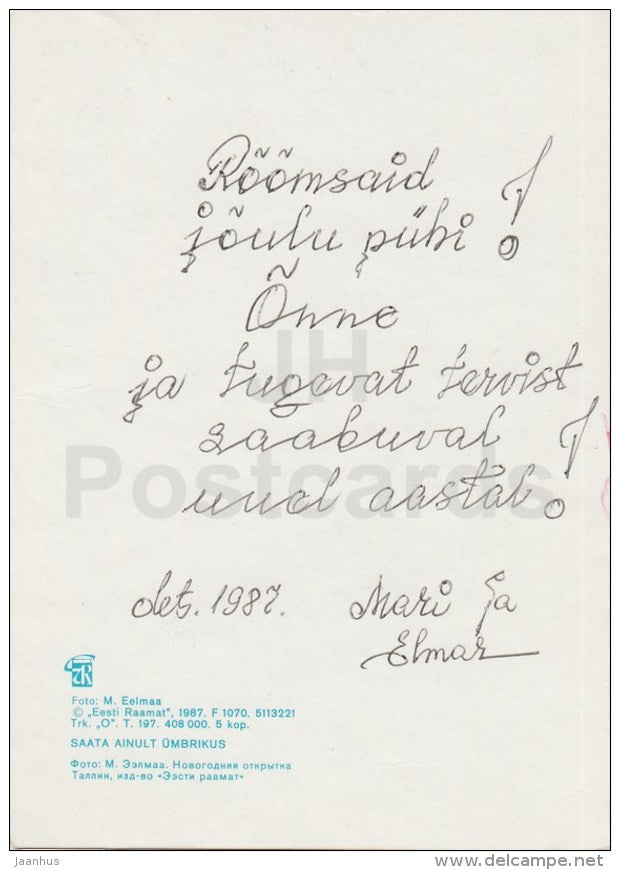 Rõõmsaid
jõulu pühi!
Õnne
ja tugevat tervist
saabuval
uuel aastal!
dets. 1987. Mari ja
Elmar
JH
Postcards
Foto: M. Eelmaa
© „Eesti Raamat", 1987. F 1070. 5113221
Trk. „O". T. 197. 408 000. 5 kop.
SAATA AINULT ÜMBRIKUS
Фото: М. Ээлмаа. Новогодняя открытка
Таллин, изд-во «Ээсти раамат»
jaanhus
www.delcampe.net